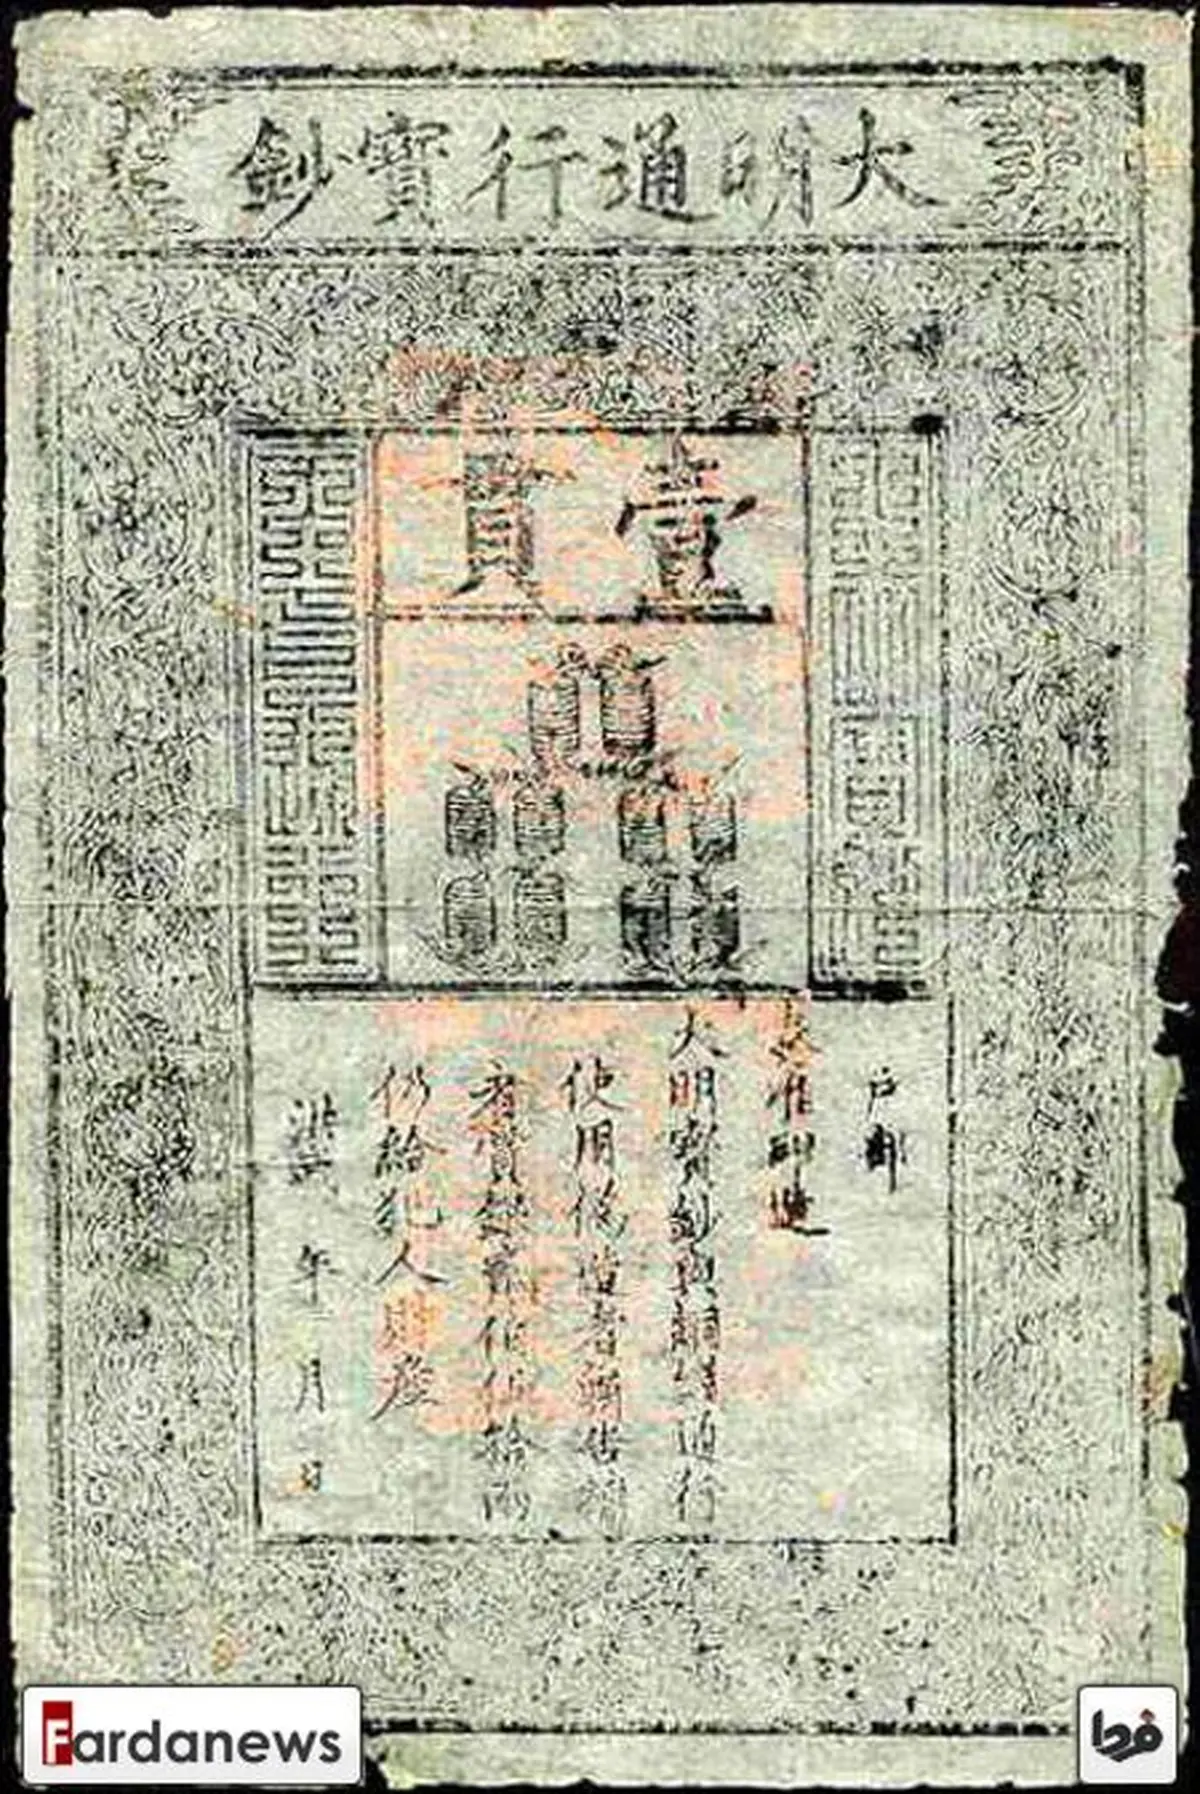 大明通行寶鈔
壹貫
户部
奏准印造
大明寶鈔與銅錢通行
使用偽造者斬告捕
者賞銀貳佰伍拾兩
仍給犯人財產
洪武 年 月 日
Fardanews
فردا